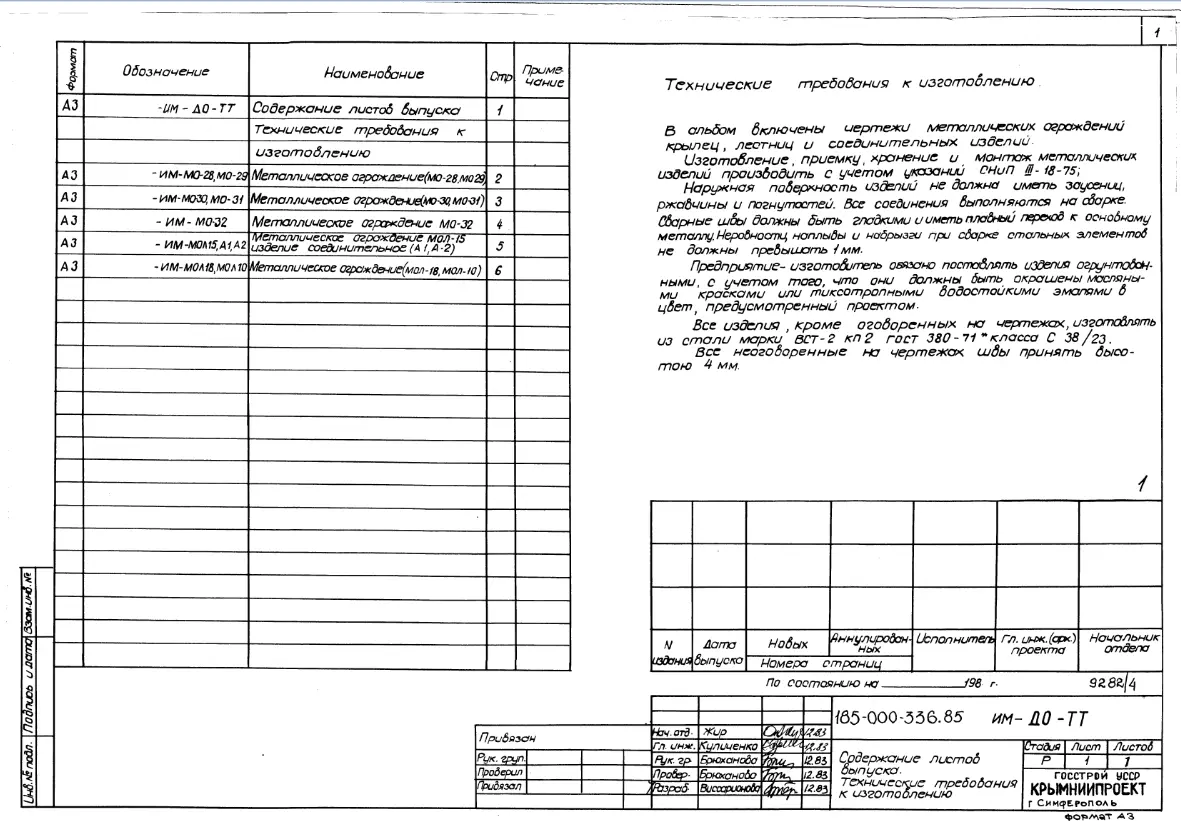 1
Формат
Обозначение
Наименование
Стр.
Приме-
чание
А3
-ИМ - ДО - ТТ
Содержание листов выпуска
1
Технические требования к
изготовлению
А3
- ИМ-МО-28, МО-29
Металлическое ограждение(МО-28,МО29)
2
А3
-ИМ-МО30, МО-31
Металлическое ограждение(МО-30,МО-31)
3
А3
- ИМ - МО-32
Металлическое ограждение МО-32
4
А3
- ИМ-МОЛ15,А1,А2
Металлическое ограждение МОЛ-15
изделие соединительное (А1, А-2)
5
А3
-ИМ-МОЛ18,МОЛ10
Металлическое ограждение(МОЛ-18, МОЛ-10)
6
Технические требования к изготовлению.
В альбом включены чертежи металлических ограждений
крылец, лестниц и соединительных изделий.
Изготовление, приемку, хранение и монтаж металлических
изделий производить с учетом указаний СНиП III-18-75;
Наружная поверхность изделий не должна иметь заусениц,
ржавчины и погнутостей. Все соединения выполняются на сварке.
Сварные швы должны быть гладкими и иметь плавный переход к основному
металлу. Неровности, наплывы и набрызги при сварке стальных элементов
не должны превышать 1 мм.
Предприятие-изготовитель обязано поставлять изделия огрунтован-
ными, с учетом того, что они должны быть окрашены масляны-
ми красками или тиксотропными водостойкими эмалями в
цвет, предусмотренный проектом.
Все изделия, кроме оговоренных на чертежах, изготовлять
из стали марки ВСТ-2 кп2 ГОСТ 380-71* класса С 38/23.
Все неоговоренные на чертежах швы принять высо-
тою 4 мм.
1
N
издания
Дата
выпуска
Новых
Аннулирован-
ных
Номера страниц
Исполнитель
Гл. инж.(арх.)
проекта
Начальник
отдела
По состоянию на 198 г.
9282/4
185-000-336.85 ИМ- ДО -ТТ
Привязан
Рук. груп.
Проверил
Привязал
Нач. отд. Жир 12.83
Гл. инж. Купиченко 12.83
Рук. гр. Брюханова 12.83
Провер. Брюханова 12.83
Разраб. Виссарионова 12.83
Содержание листов
выпуска.
Технические требования
к изготовлению
Стадия Лист Листов
Р 1 1
ГОССТРОЙ УССР
КРЫМНИИПРОЕКТ
г Симферополь
ФОРМАТ А3
Инв. № подл.
Подпись и дата
Взам.инв. №